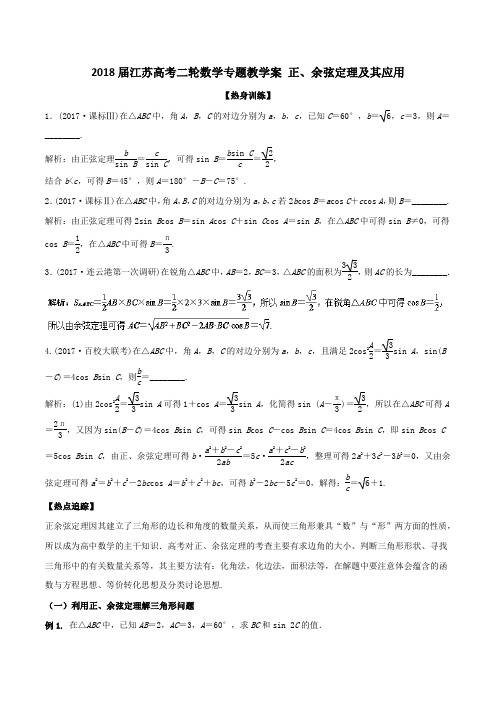 2018届江苏高考二轮数学专题教学案 正、余弦定理及其应用
【热身训练】
1．(2017·课标Ⅲ)在△ABC中，角A，B，C的对边分别为a，b，c，已知C＝60°，b＝√6，c＝3，则A＝
________.
解析：由正弦定理b/sin B＝c/sin C，可得sin B＝bsin C/c＝√2/2，
结合b<c，可得B＝45°，则A＝180°－B－C＝75°.
2．(2017·课标Ⅱ)在△ABC中，角A，B，C的对边分别为a，b，c若2bcos B＝acos C＋ccos A，则B＝________.
解析：由正弦定理可得2sin Bcos B＝sin Acos C＋sin Ccos A＝sin B，在△ABC中可得sin B≠0，可得
cos B＝1/2，在△ABC中可得B＝π/3.
3．(2017·连云港第一次调研)在锐角△ABC中，AB＝2，BC＝3，△ABC的面积为3√3/2，则AC的长为________.
解析：S△ABC＝1/2AB×BC×sinB＝1/2×2×3×sinB＝3√3/2，所以sinB＝√3/2，在锐角△ABC中可得cosB＝1/2，
所以由余弦定理可得AC＝√(AB²＋BC²－2AB·BC·cosB)＝√7.
4.(2017·百校大联考)在△ABC中，角A，B，C的对边分别为a，b，c，且满足2cos²A/2＝√3/3sin A，sin(B
－C)＝4cos Bsin C，则b/c＝________.
解析：(1)由2cos²A/2＝√3/3sin A可得1＋cos A＝√3/3sin A，化简得sin (A－π/3)＝√3/2，所以在△ABC可得A
＝2π/3，又因为sin(B－C)＝4cos Bsin C，可得sin Bcos C－cos Bsin C＝4cos Bsin C，即sin Bcos C
＝5cos Bsin C，由正、余弦定理可得b·(a²＋b²－c²)/2ab＝5c·(a²＋c²－b²)/2ac，整理可得2a²＋3c²－3b²＝0，又由余
弦定理可得a²＝b²＋c²－2bccos A＝b²＋c²＋bc，可得b²－2bc－5c²＝0，解得：b/c＝√6＋1.
【热点追踪】
正余弦定理因其建立了三角形的边长和角度的数量关系，从而使三角形兼具“数”与“形”两方面的性质，
所以成为高中数学的主干知识．高考对正、余弦定理的考查主要有求边角的大小、判断三角形形状、寻找
三角形中的有关数量关系等，其主要方法有：化角法，化边法，面积法等，在解题中要注意体会蕴含的函
数与方程思想、等价转化思想及分类讨论思想.
（一）利用正、余弦定理解三角形问题
例1. 在△ABC中，已知AB＝2，AC＝3，A＝60°，求BC和sin 2C的值.